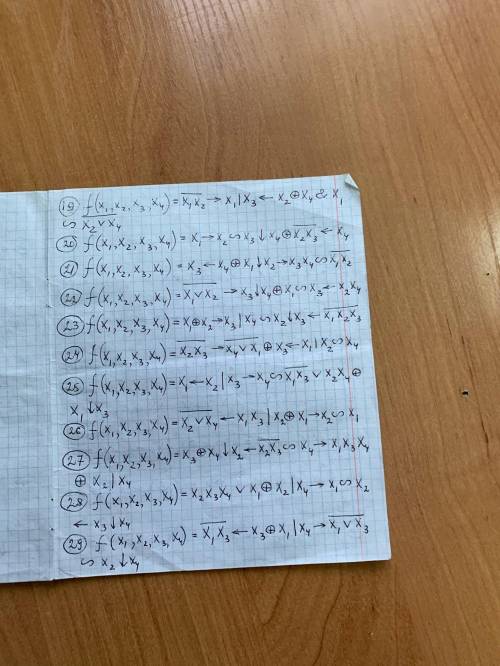 19 f(x₁,x₂,x₃,x₄) = \overline{x₁x₂} → x₁|x₃ ← x₂⊕x₄&x₁
∽ \overline{x₂∨x₄}
20 f(x₁,x₂,x₃,x₄) = x₁→x₂∽x₃↓x₄⊕\overline{x₂x₃}←x₄
21 f(x₁,x₂,x₃,x₄) = x₃←x₄⊕x₁↓x₂→x₃x₄∽\overline{x₁x₂}
22 f(x₁,x₂,x₃,x₄) = \overline{x₁∨x₂} → x₃↓x₄⊕x₁∽x₃←x₂x₄
23 f(x₁,x₂,x₃,x₄) = x₁⊕x₂→x₃|x₄∽x₂↓x₃←\overline{x₁x₂x₃}
24 f(x₁,x₂,x₃,x₄) = \overline{x₂x₃} → \overline{x₄∨x₁}⊕x₃←x₁|x₂∽x₄
25 f(x₁,x₂,x₃,x₄) = x₁←x₂|x₃→x₄∽\overline{x₁x₃}∨x₂x₄⊕
x₁↓x₃
26 f(x₁,x₂,x₃,x₄) = \overline{x₂∨x₄} ← x₁x₃|x₂⊕x₁→x₂∽x₁
27 f(x₁,x₂,x₃,x₄) = x₃⊕x₄↓x₂←\overline{x₂x₃}∽x₄→x₁x₃x₄
⊕ x₂|x₄
28 f(x₁,x₂,x₃,x₄) = x₂x₃x₄∨x₁⊕x₂|x₄→x₁∽x₂
← x₃↓x₄
29 f(x₁,x₂,x₃,x₄) = \overline{x₁x₃} ← x₃⊕x₁|x₄→\overline{x₁∨x₃}
∽ x₂↓x₄